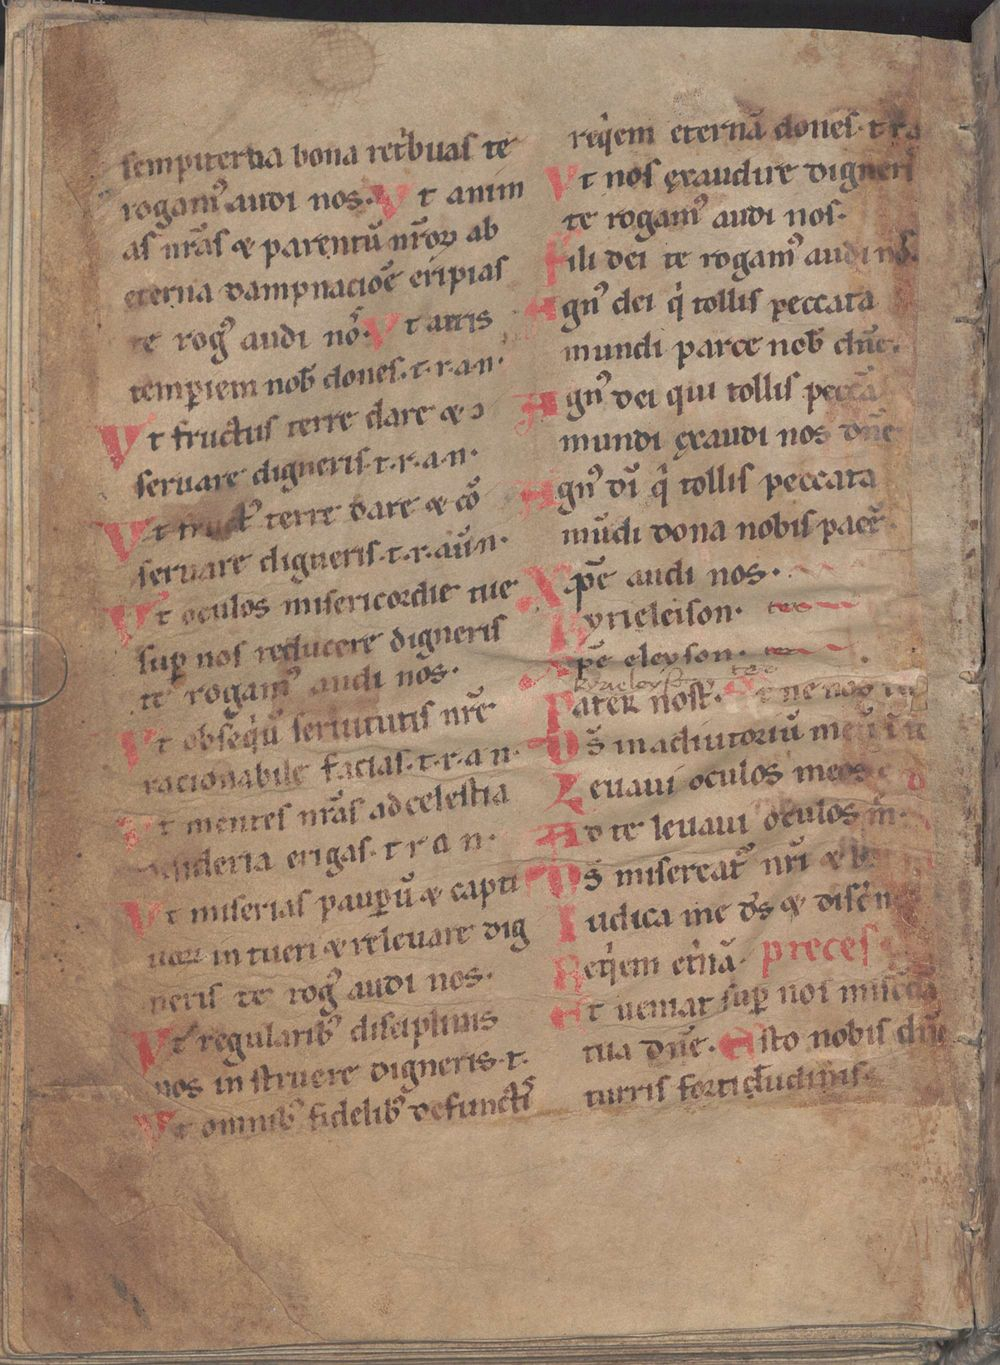 sempiterna bona retͥbuas te
rogamꝰ audi nos. Vt anim
as nr̄as ⁊ parentū nr̄oꝝ ab
eterna dampnacōe eripias
te rogꝰ audi no᷒. Vt aeris
temperiem nob̄ dones. t. r. a. n.
Vt fructus terre dare ⁊ ↄ
seruare digneris. t. r. a. n.
Vt fructꝰ terre dare ⁊ cō
seruare digneris. t. r. aū. n.
Vt oculos misericordie tue
suꝑ nos reducere digneris
te rogamꝰ audi nos.
Vt obseqͥū seruitutis nr̄e
racionabile facias. t. r. a. n.
Vt mentes nr̄as ad celestia
desideria erigas. t r a n.
Vt miserias pauꝑū ⁊ capti
uoꝝ intueri ⁊ releuare dig
neris te rogꝰ audi nos.
Vt regularibꝰ disciplinis
nos instruere digneris. t.
Vt omnibꝰ fidelibꝰ defunctis
reqͥem eternā dones. t r a
Vt nos exaudire digneris
te rogamꝰ audi nos.
Fili dei te rogamꝰ audi nos.
Agnꝰ dei qͥ tollis peccata
mundi parce nob̄ dn̄e.
Agnꝰ dei qui tollis peccā
mundi exaudi nos dn̄e
Agnꝰ dī qͥ tollis peccata
mūdi dona nobis pacē.
Xp̄e audi nos.
Kyrieleison. ter
Xp̄e eleyson. ter
kyrieleyson ter
Pater nosť. Et ne nos
Ds̄ in adiutoriū meū
Leuaui oculos meos
Ad te leuaui oculos m̄.
Ds̄ misereatꝰ nr̄i ⁊
Iudica me ds̄ ⁊ disc̄n
Reqͥem et̄nā. preces.
Et ueniat suꝑ nos mīscd̄ia
tua dn̄e. Esto nobis dn̄e
turris fortitudinis.